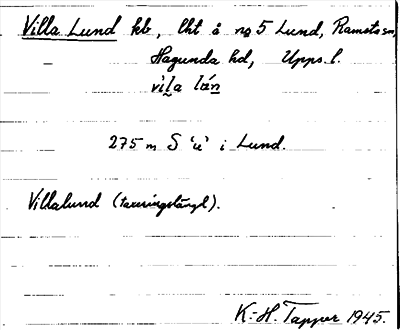 Villa Lund kb, lht å no 5 Lund, Ramsta sn,
Hagunda hd, Upps. l.
vìl̰a lán
275 m S 'u' i Lund.
Villalund (taxeringslängd).
K.-H. Tapper 1945.